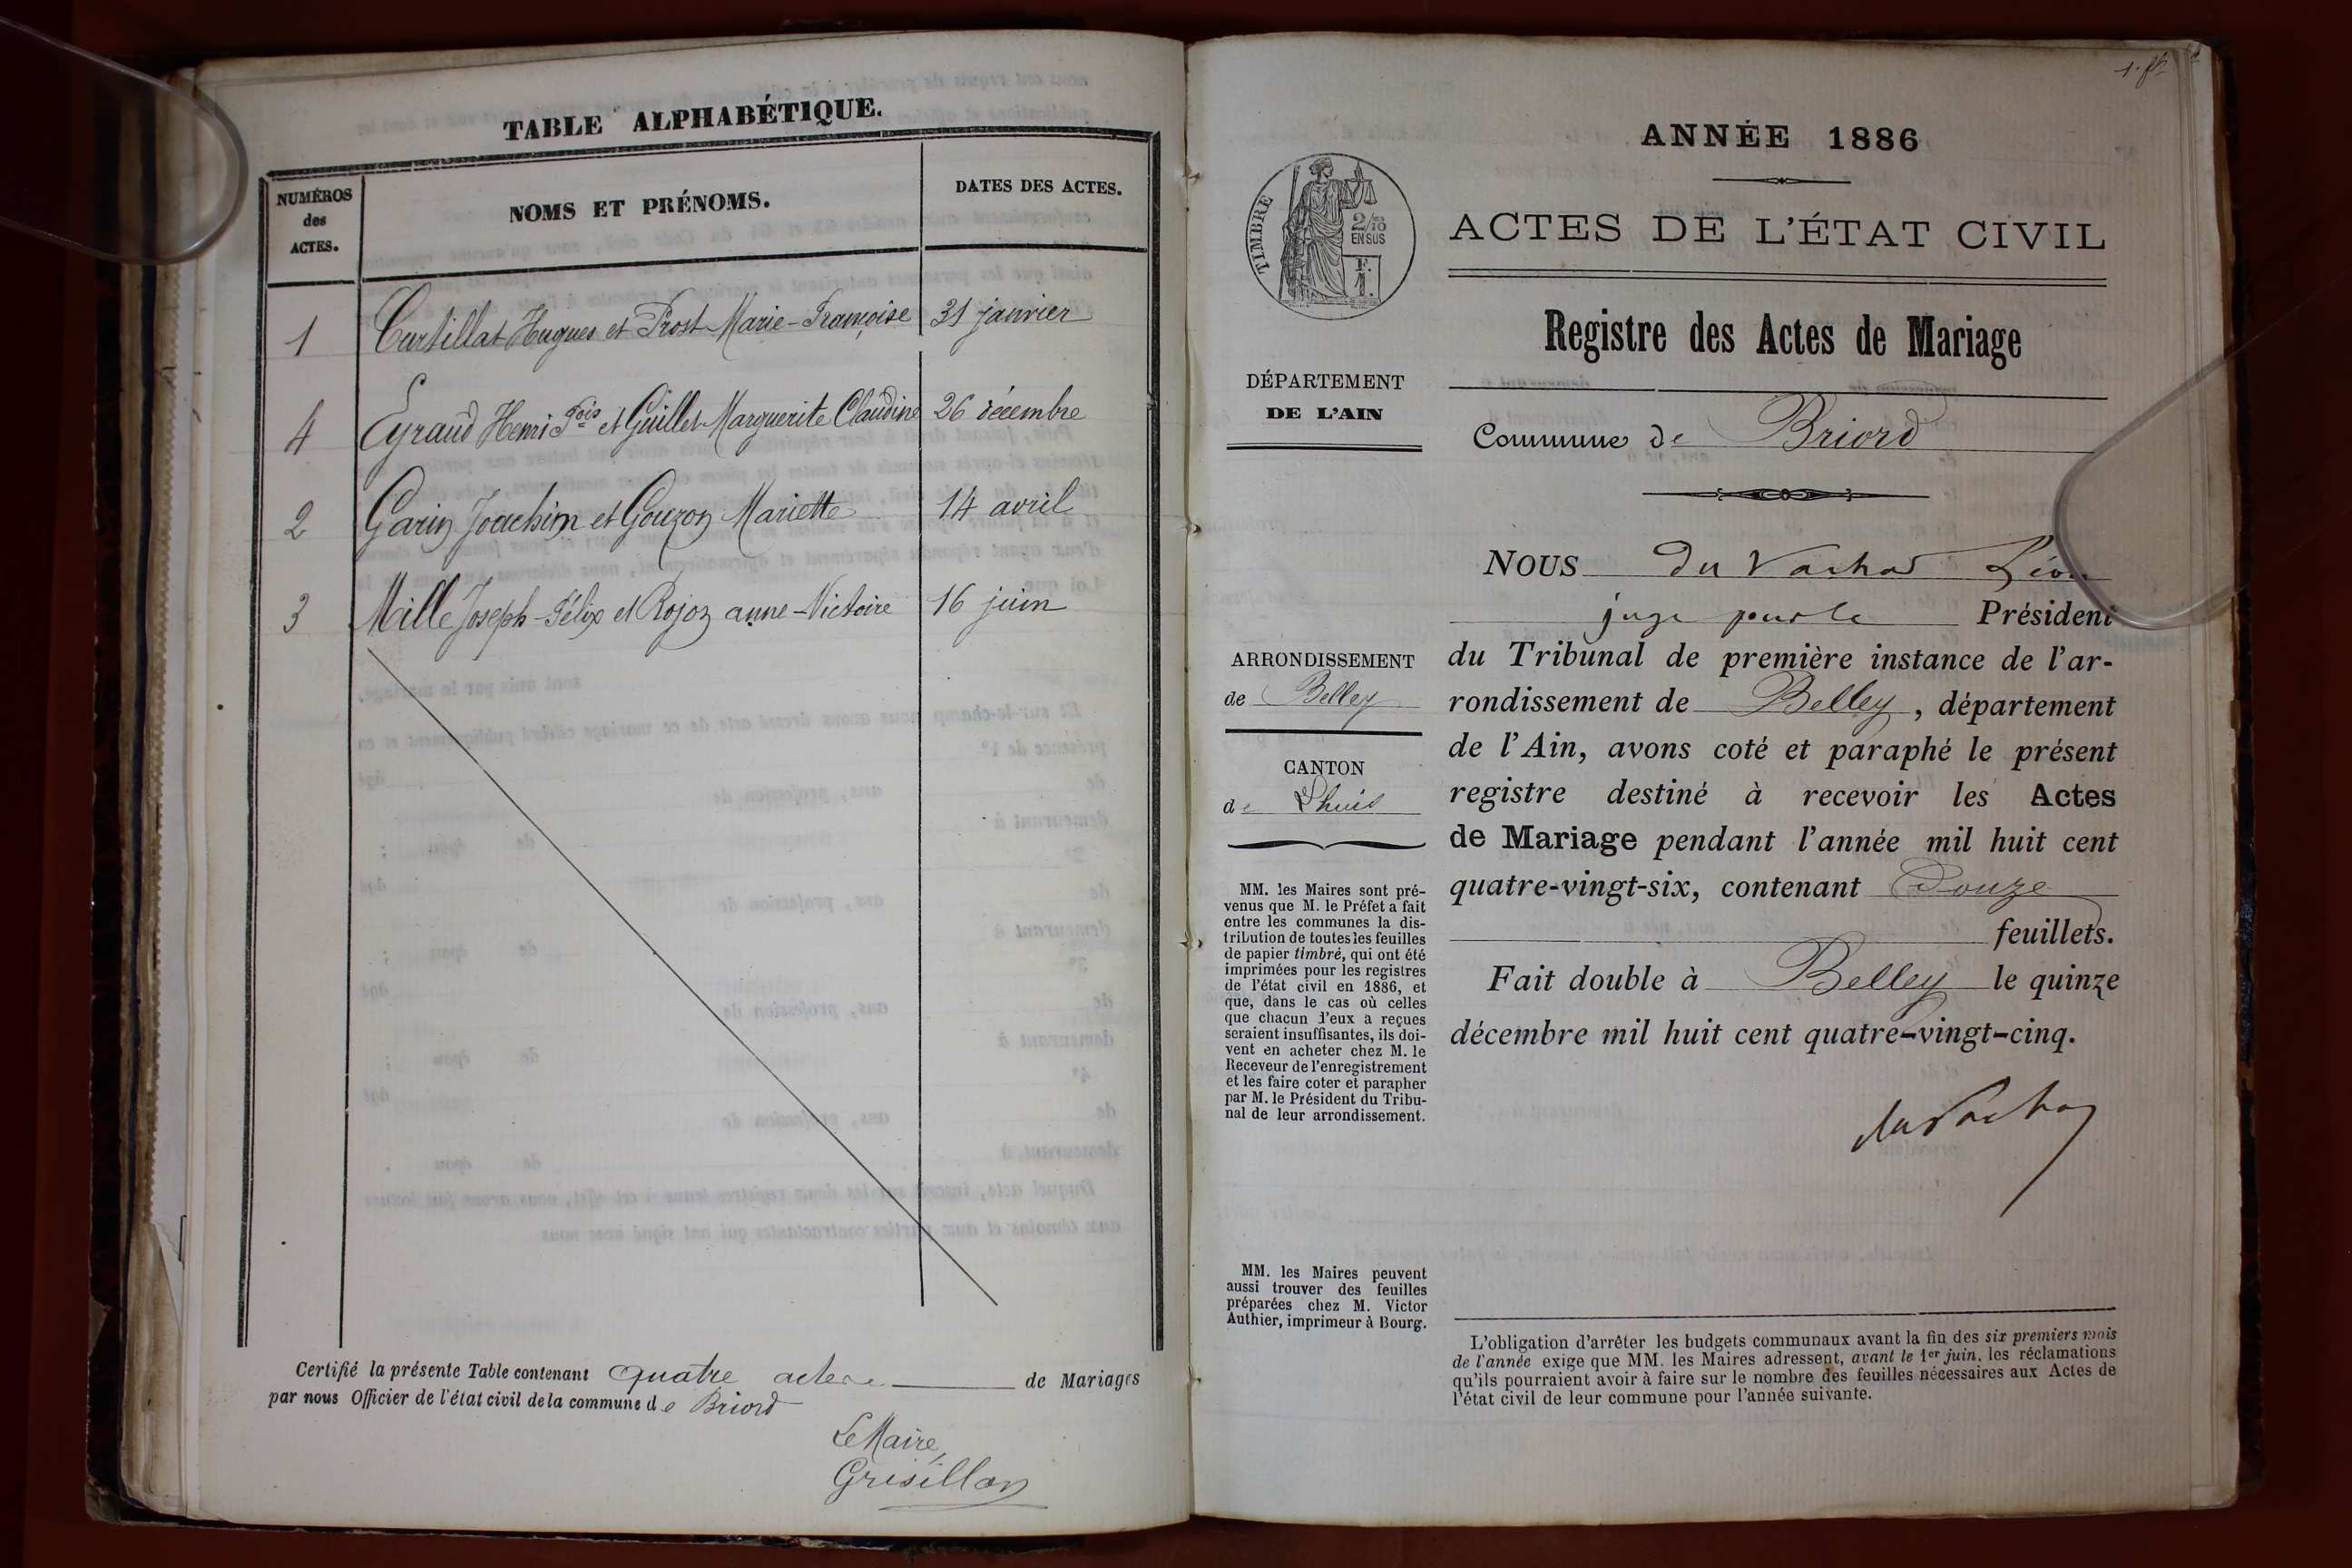 TABLE ALPHABÉTIQUE.
NUMÉROS
des
ACTES.
NOMS ET PRÉNOMS.
DATES DES ACTES.
1 Curtillat Hugues et Prost Marie-Françoise 31 janvier
4 Eyraud Henri Fois et Guillet Marguerite Claudine 26 décembre
2 Garin Joachim et Gouzon Mariette 14 avril
3 Mille Joseph-Félix et Rojon anne-Victoire 16 juin
Certifié la présente Table contenant quatre actes de Mariages
par nous Officier de l'état civil de la commune de Briord
Le Maire,
Grisillon
ANNÉE 1886
TIMBRE
2/10
EN SUS
ACTES DE L'ÉTAT CIVIL
Registre des Actes de Mariage
DÉPARTEMENT
DE L'AIN
Commune de Briord
NOUS du Vachat Léon
juge pour le Président
du Tribunal de première instance de l'ar-
rondissement de Belley, département
de l'Ain, avons coté et paraphé le présent
registre destiné à recevoir les Actes
de Mariage pendant l'année mil huit cent
quatre-vingt-six, contenant Douze
feuillets.
Fait double à Belley le quinze
décembre mil huit cent quatre-vingt-cinq.
du Vachat
ARRONDISSEMENT
de Belley
CANTON
de Lhuis
MM. les Maires sont pré-
venus que M. le Préfet a fait
entre les communes la dis-
tribution de toutes les feuilles
de papier timbré, qui ont été
imprimées pour les registres
de l'état civil en 1886, et
que, dans le cas où celles
que chacun d'eux a reçues
seraient insuffisantes, ils doi-
vent en acheter chez M. le
Receveur de l'enregistrement
et les faire coter et parapher
par M. le Président du Tribu-
nal de leur arrondissement.
MM. les Maires peuvent
aussi trouver des feuilles
préparées chez M. Victor
Authier, imprimeur à Bourg.
L'obligation d'arrêter les budgets communaux avant la fin des six premiers mois
de l'année exige que MM. les Maires adressent, avant le 1er juin, les réclamations
qu'ils pourraient avoir à faire sur le nombre des feuilles nécessaires aux Actes de
l'état civil de leur commune pour l'année suivante.